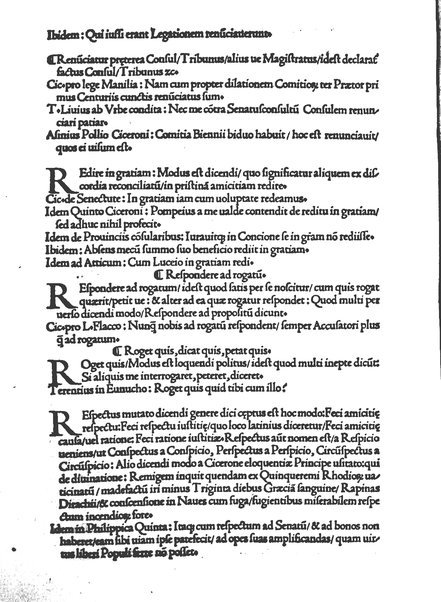 Ibidem: Qui iussi erant Legationem renũciauerunt.
¶ Renũciatur preterea Consul/Tribunus/alius ue Magistratus/idest declarat᷑
factus Consul/Tribunus ⁊c.
Cic.pro lege Manilia: Nam cum propter dilationem Comitioꝝ ter Prætor pri
mus Centuriis cunctis renũciatus sum.
T.Liuius ab Vrbe condita: Nec me cõtra Senatusconsultũ Consulem renun
ciari patiar.
Asinius Pollio Ciceroni: Comitia Biennii biduo habuit/ hoc est renunciauit/
quos ei uisum est.
REdire in gratiam: Modus est dicendi/ quo significatur aliquem ex dis
cordia reconciliatũ/in pristinã amicitiam redire.
Cic.de Senectute: In gratiam iam cum uoluptate redeamus.
Idem Quinto Ciceroni: Pompeius a me ualde contendit de reditu in gratiam/
sed adhuc nihil profecit.
Idem de Prouinciis cõsularibus: Iurauitqꝫ in Concione se in gr̃am nõ rediisse.
Ibidem: Absens mecũ summo suo beneficio rediit in gratiam.
Idem ad Atticum: Cum Luceio in gratiam redi.
¶ Respondere ad rogatũ.
REspondere ad rogatum/idest quod satis per se noscitur/ cum quis rogat
quærit/petit ue: & alter ad ea quæ rogatur respondet: Quod multi per
uerso dicendi modo/Respondere ad propositũ dicunt.
Cic.pro L.Flacco: Nunqꝫ nobis ad rogatũ respondent/ semper Accusatori plus
q̃ ad rogatum.
¶ Roget quis, dicat quis, petat quis.
ROget quis/Modus est loquendi politus/ idest quod multi inepte dicũt:
Si aliquis me interrogaret, peteret, diceret.
Terentius in Eunucho: Roget quis quid tibi cum illo?
REspectus mutato dicendi genere dici cœptus est hoc modo: Feci amicitiæ
respectu: Feci respectu iustitiæ/quo loco latinius diceretur/Feci amicitiæ
causa/uel ratione: Feci ratione iustitiæ. Respectus aũt nomen est/a Respicio
ueniens/ut Conspectus a Conspicio, Perspectus a Perspicio, Circũspectus a
Circũspicio: Alio dicendi modo a Cicerone eloquentiæ Principe usitato: qui
de diuinatione: Remigem inquit quendam ex Quinqueremi Rhodioꝝ ua
ticinatũ / madefactũ iri minus Triginta diebus Græciã sanguine/ Rapinas
Dirachii/& conscensione in Naues cum fuga/fugientibus miserabilem respe
ctum incendioꝝ fore.
Idem in Philippica Quinta: Itaqꝫ cum respectum ad Senatũ/& ad bonos non
haberet/eam sibi uiam ipse patefecit/ad opes suas amplificandas/ quam uir
tus liberi Populi ferre nõ posset.